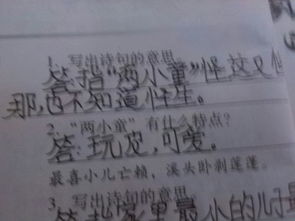 1. 写出诗句的意思
答:指“两小童”怪这又怪
那,也不知道怪生。
2.“两小童”有什么特点?
答:玩皮,可爱。
最喜小儿亡赖,溪头卧剥莲蓬。
3. 写出诗句的意思
里最小的儿子最